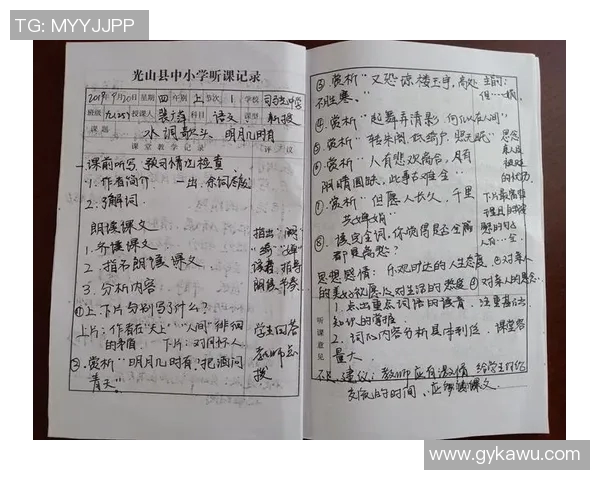 TG: MYYJJPP
光山县中小学听课记录
2019年9月20日 星期 四 年别 上 节次 1 学校 司马光中学
班级 授课人 科目 语文 课型 新授
课题 水调歌头·明月几时有
课堂教学记录 评议
一课前听写、预习情况检查
1. 作者简介
2. 了解词
朗读课文
1. 齐读课文
2. 指名朗读课文
3. 分析内容
①上、下片分别写了什么?
上片:作者在"天上""人间"徘徊
的矛盾 下片:对月怀人
②赏析"明月几时有,把酒问
青天"
指出"阙"
读音,指导
朗读、节奏
学生回答
教师点
拨
③赏析"又恐琼楼玉宇,高处
不胜寒。"
④赏析"起舞弄清影,何似在人间"
⑤赏析"转朱阁,低绮户,照无眠"
⑥赏析"人有悲欢离合,月有
阴晴圆缺,此事古难全"
⑦赏析"但愿人长久,千里
共婵娟"
⑧读完全词,你觉得是否全篇
都是离愁?
思想感情:乐观旷达的人生态度
的美好祝愿 对生活的热爱
听课意见
1. 点出重点词语的读音 注重基础
知识的掌握
2. 词的内容分析具体到位,课堂容
量大。
建议:教师应有激情 给学生时间
交流的时间、应多读课文
www.gykawu.com